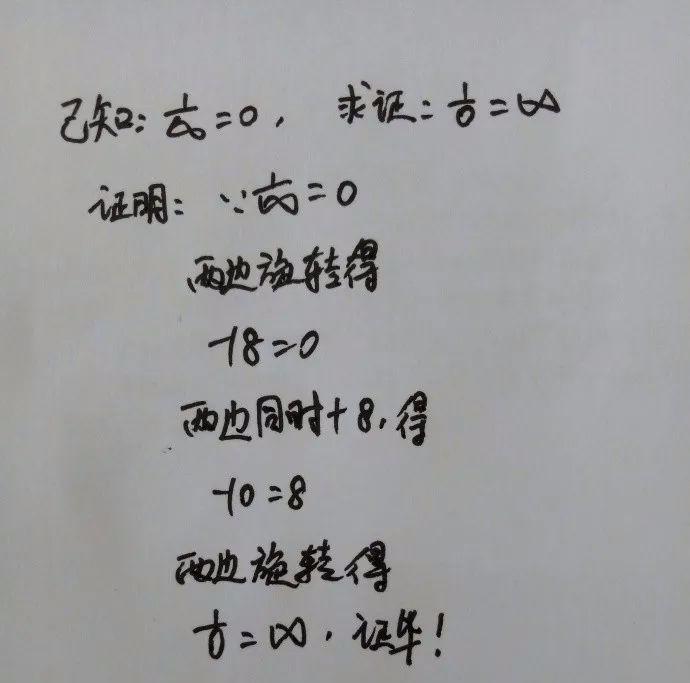 已知: 1/∞ = 0, 求证: 1/0 = ∞
证明: ∵ 1/∞ = 0
两边旋转得
-18 = 0
两边同时+8, 得
-10 = 8
两边旋转得
1/0 = ∞, 证毕!